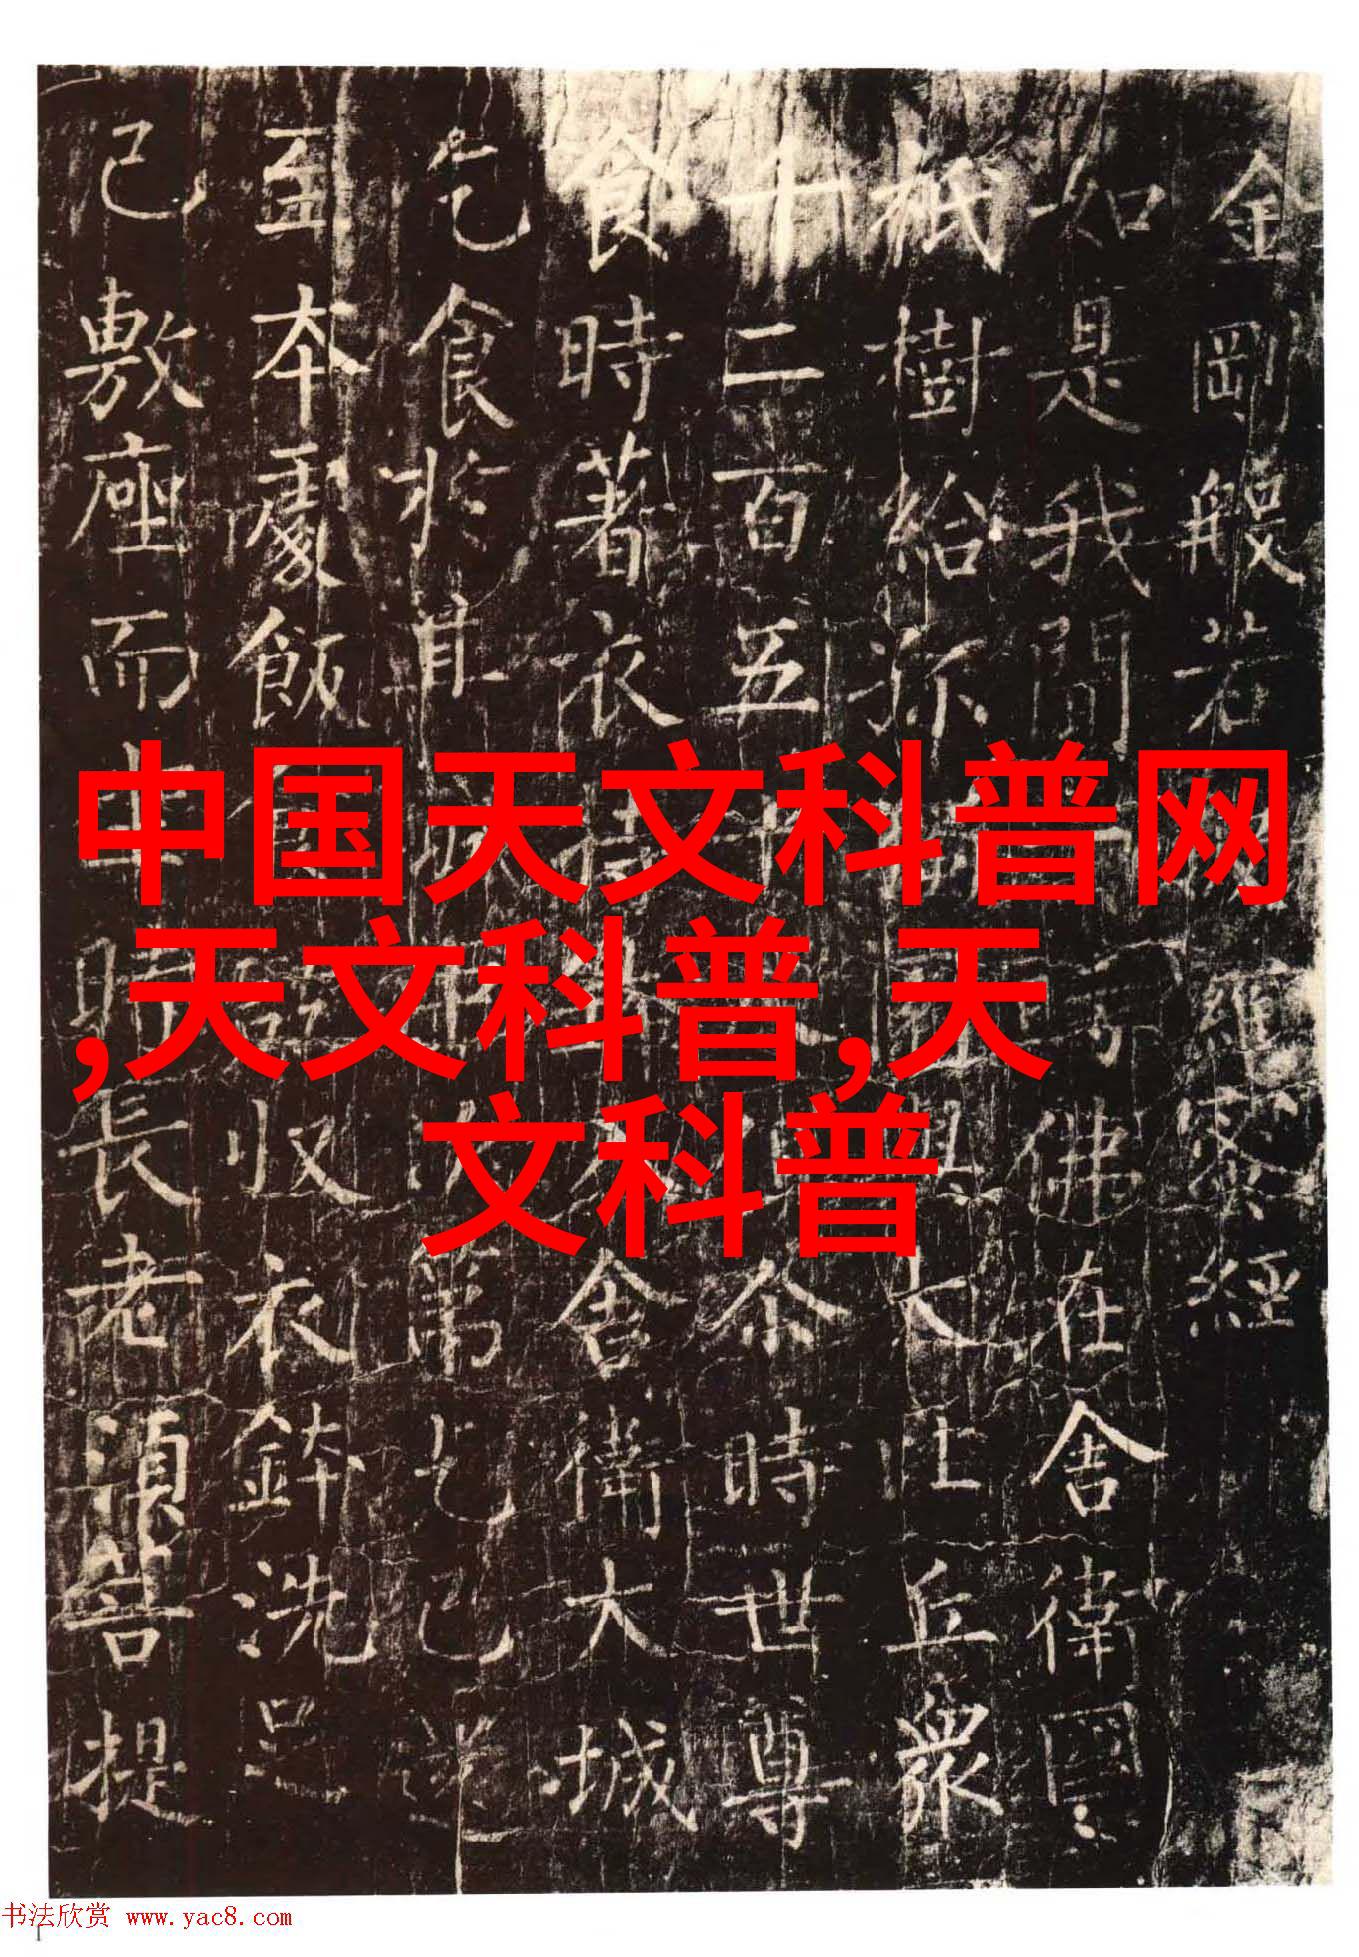 金剛般若羅蜜經
如是我聞佛在舍衛國
祇樹給孤大比丘衆
十二百五尒時世尊
食時著衣持舍衛大城
乞食於其城次第乞已還
至本處飯收衣鉢洗足
已敷座而坐時長老須菩提
中国天文科普网
,天文科普,天
文科普
书法欣赏 www.yac8.com